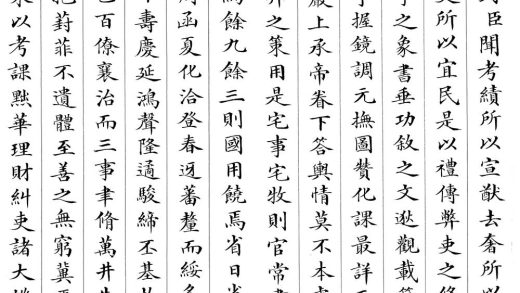 臣聞考績所以宣猷去奢所以
所以宜民是以禮傳弊吏之
之象書垂功敘之文逖觀載
握鏡調元撫圖贊化課最詳
嚴上承帝眷下答輿情莫不本
之策用是宅事宅牧則官常
焉餘九餘三則國用饒焉省日省
函夏化洽登春迓蕃釐而綏多
壽慶延鴻聲隆遹駿締丕基
百僚襄治而三事聿脩萬井
葑菲不遺體至善之無窮冀
以考課黜華理財糾吏諸大